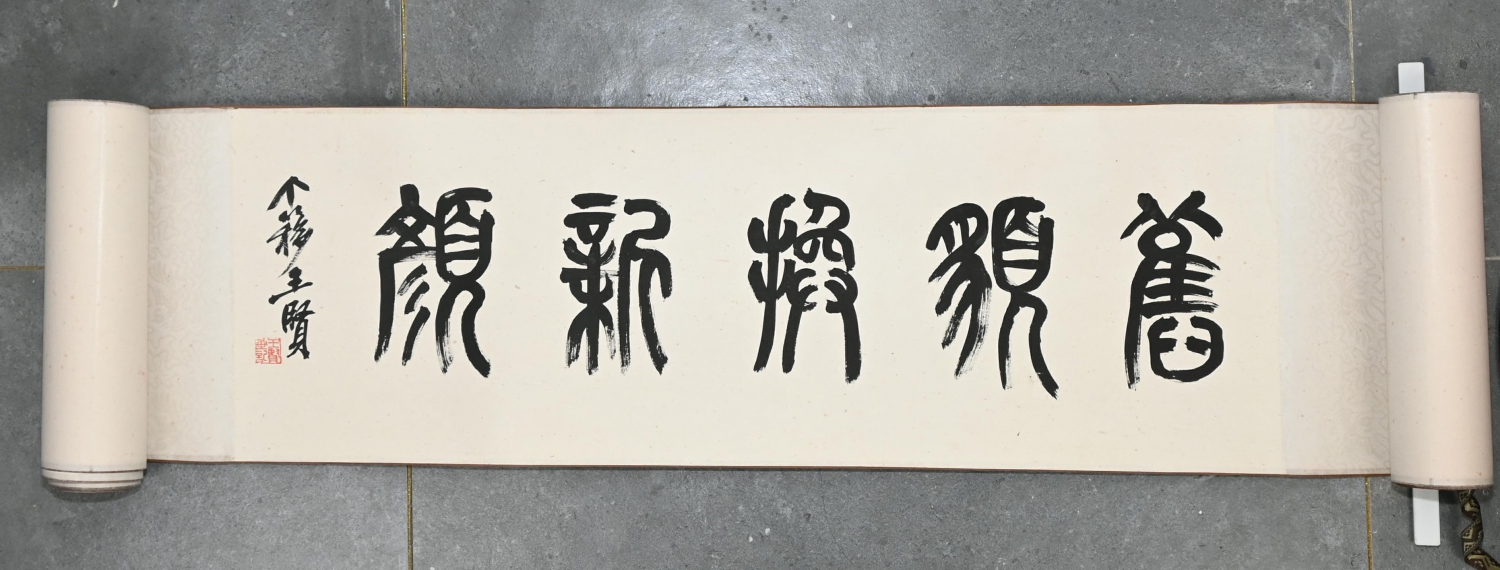 舊貌換新顏
个簃王賢